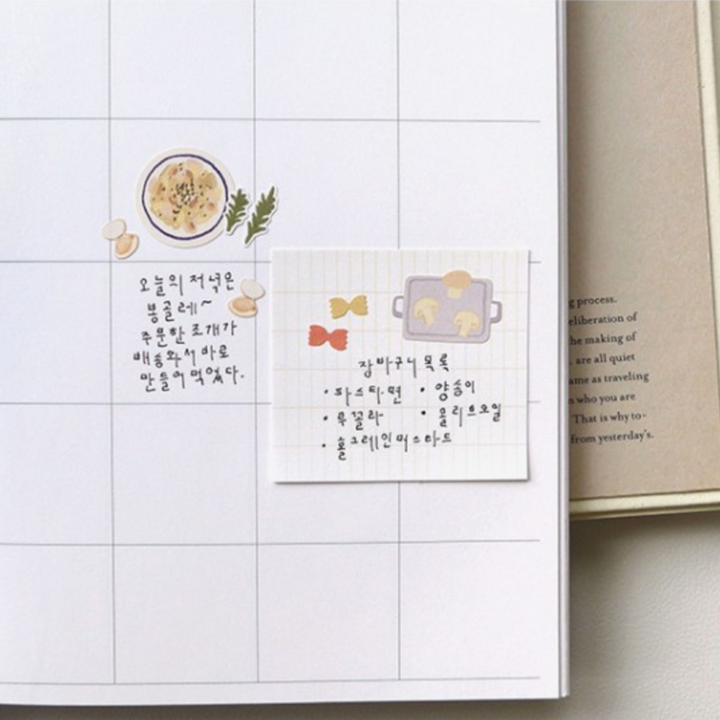 오늘의 저녁은
봉골레~
주문한 조개가
배송와서 바로
만들어 먹었다.
장바구니 목록
· 파스타면 · 양송이
· 루꼴라 · 올리브오일
· 홀그레인머스타드
g process.
eliberation of
he making of
, are all quiet
ame as traveling
n who you are
That is why to-
from yesterday's.